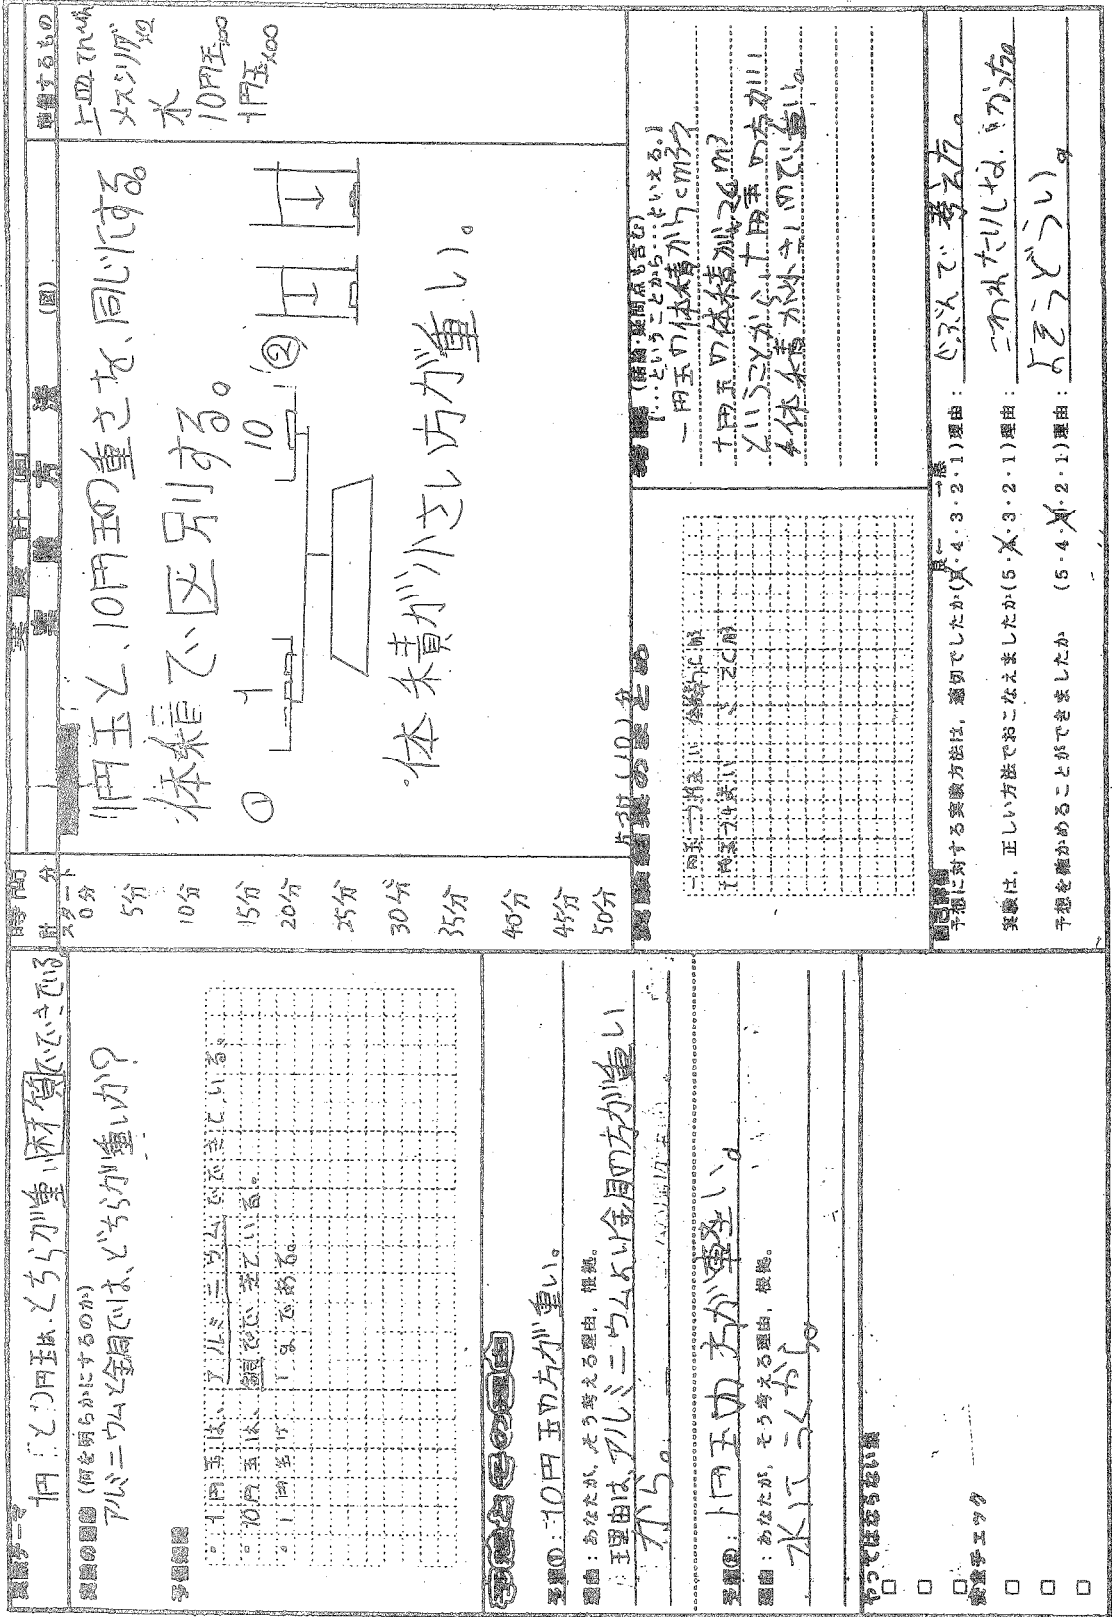 実験テーマ
1円と10円玉は、どちらが重い材質でできている
実験の目的(何を明らかにするのか)
アルミニウムと金属では、どちらが重いか?
予備知識
。1円玉は、アルミニウムでできている。
。10円玉は、銅でできている。
。1円玉は1gである。
予想とその理由
予想①:10円玉の方が重い。
理由:あなたが、そう考える理由、根拠。
理由は、アルミニウムより金属の方が重い
から。
予想②:1円玉の方が軽い。
理由:あなたが、そう考える理由、根拠。
水にうくから。
やってはならない事
安全チェック
実験計画
時間
計 分
実験方法 (図)
準備するもの
スタート
0分
5分
10分
15分
20分
25分
30分
35分
40分
45分
50分
1円玉と、10円玉の重さを、同じにする。
体積で区別する。
① 1 10 ②
・体積が小さい方が重い。
片づけ(10)分
上皿てんびん
メスシリンダ
水
10円玉
1円玉
実験結果のまとめ
考察(結論・疑問点も含む)
[…ということから…といえる。]
一円玉の体積が7cm³
十円玉の体積が2cm³
ということから、十円玉の方が
体積が小さいので、重い。
自己評価
良← →悪
予想に対する実験方法は、適切でしたか(5・4・3・2・1)理由:じぶんで考えた。
実験は、正しい方法でおこなえましたか(5・4・3・2・1)理由:こわれたりしなかった。
予想を確かめることができましたか (5・4・3・2・1)理由:よそうどうり。